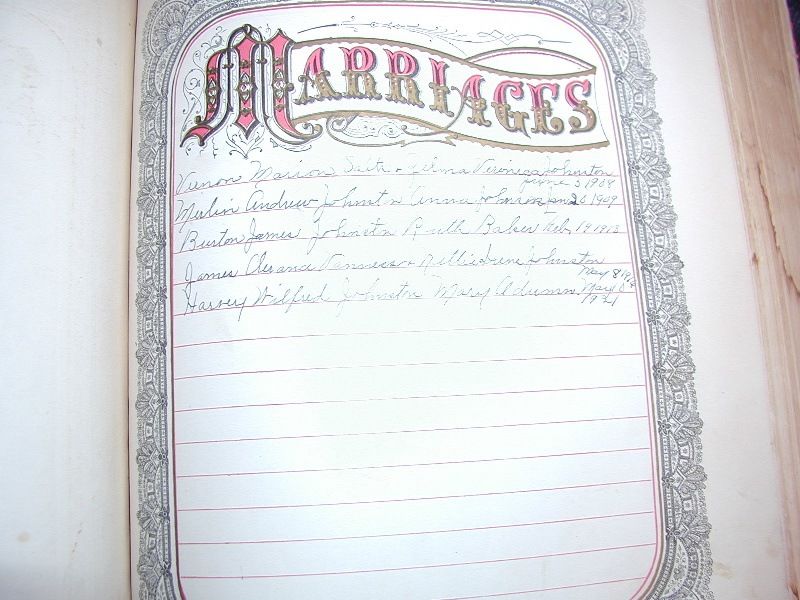 MARRIAGES
Vernon Marion Salts + Zelma Veronica Johnston
June 3 1904
Merlin Andrew Johnston Anna Johnson Jan 20 1909
Burton James Johnston Ruth Baker Feb 19 1913
James Nellie Irene Johnston
May 8
Harvey Wilfred Johnston Mary May
1921